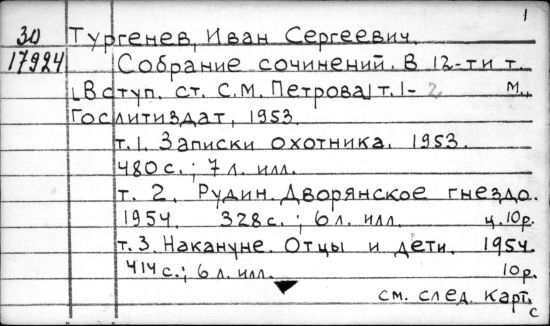 1
30 Тургенев, Иван Сергеевич.
17924 Собрание сочинений. В 12-ти т.
[Вступ. ст. С.М. Петрова] т. 1-2 м.,
Гослитиздат, 1953.
т. 1. Записки охотника. 1953.
480 с.; 7 л. илл.
т. 2. Рудин. Дворянское гнездо.
1954. 328 с.; 6 л. илл. ц. 10р.
т. 3. Накануне. Отцы и дети. 1954.
414 с.; 6 л. илл. 10р.
см. след. карт.
с